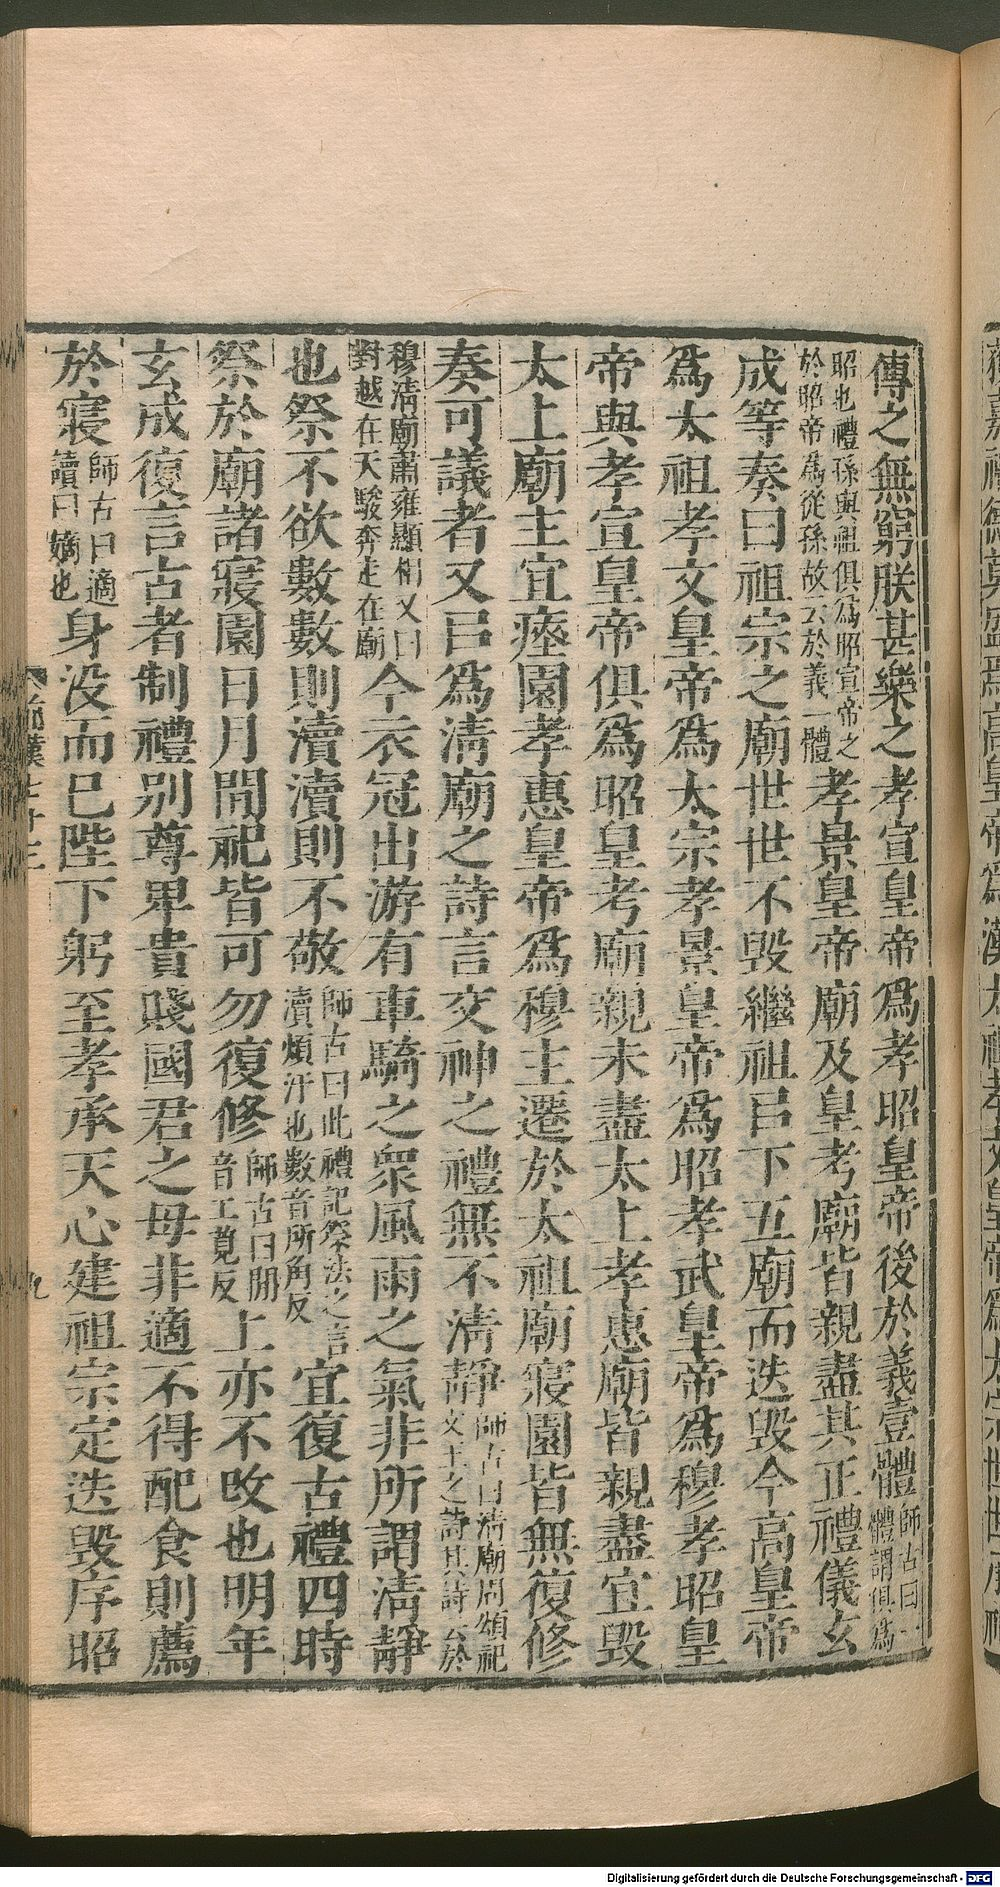 傳之無窮朕甚樂之孝宣皇帝爲孝昭皇帝後於義壹體師古曰一體謂俱爲
昭也禮孫與祖俱爲昭宣帝之於昭帝爲從孫故云於義一體孝景皇帝廟及皇考廟皆親盡其正禮儀玄
成等奏曰祖宗之廟世世不毀繼祖㠯下五廟而迭毀今高皇帝
爲太祖孝文皇帝爲太宗孝景皇帝爲昭孝武皇帝爲穆孝昭皇
帝與孝宣皇帝俱爲昭皇考廟親未盡太上孝惠廟皆親盡宜毀
太上廟主宜瘞園孝惠皇帝爲穆主遷於太祖廟寢園皆無復修
奏可議者又㠯爲清廟之詩言交神之禮無不清靜師古曰清廟周頌祀文王之詩其詩云於
穆清廟肅雍顯相又曰對越在天駿奔走在廟今衣冠出游有車騎之衆風雨之氣非所謂清靜
也祭不欲數數則瀆瀆則不敬師古曰此禮記祭法之言瀆煩汙也數音所角反宜復古禮四時
祭於廟諸寢園日月間祀皆可勿復修師古曰間音工莧反上亦不改也明年
玄成復言古者制禮別尊卑貴賤國君之母非適不得配食則薦
於寢師古曰適讀曰嫡也身没而已陛下躬至孝承天心建祖宗定迭毀序昭
前漢七十三
九
Digitalisierung gefördert durch die Deutsche Forschungsgemeinschaft - DFG